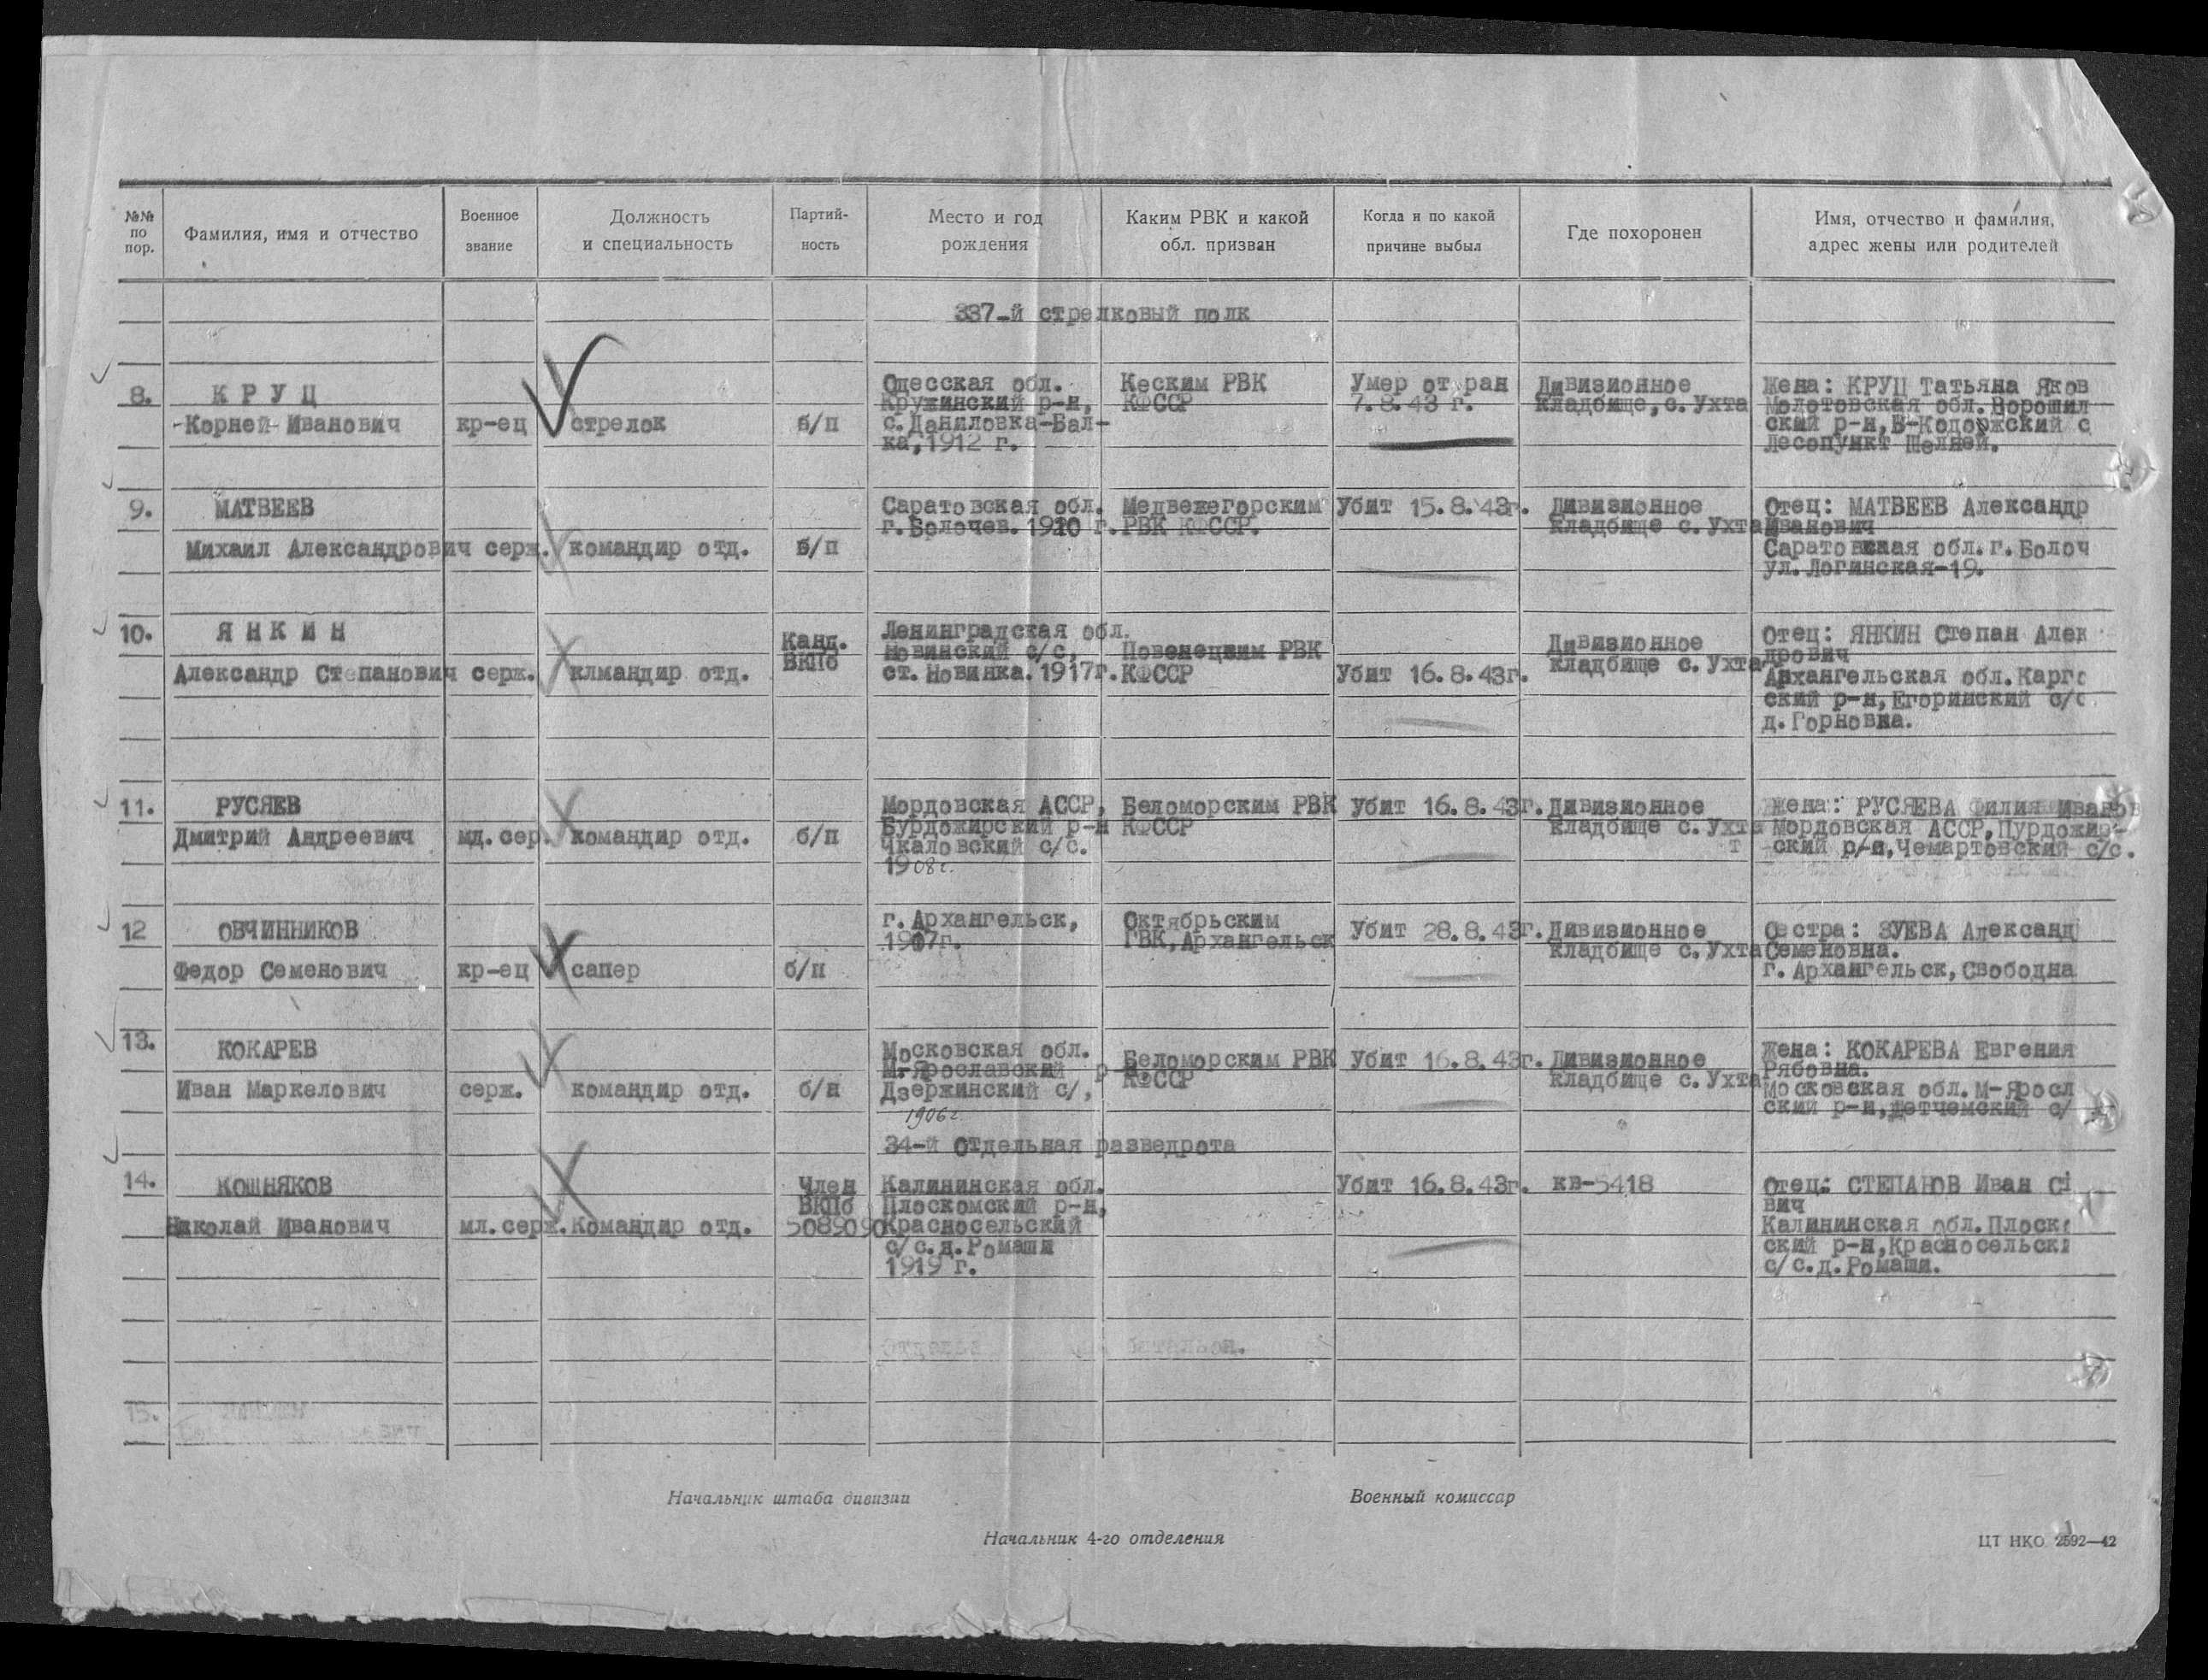 №№ по пор.
Фамилия, имя и отчество
Военное звание
Должность и специальность
Партий-ность
Место и год рождения
Каким РВК и какой обл. призван
Когда и по какой причине выбыл
Где похоронен
Имя, отчество и фамилия, адрес жены или родителей
337-й стрелковый полк
8.
К Р У Ц
Корней Иванович
кр-ец
стрелок
б/п
Одесская обл.
Кружинский р-н,
с.Даниловка-Бал-
ка,1912 г.
Кеским РВК
КФССР
Умер от ран
7.8.43 г.
Дивизионное
кладбище,с.Ухта
Жена: КРУЦ Татьяна Яков
Молотовская обл.Ворошил
ский р-н,В-Кодоржский с
Лесопункт Шелней.
9.
МАТВЕЕВ
Михаил Александрович
серж.
командир отд.
б/п
Саратовская обл.
г.Болочев.1920 г.
Медвежегорским
РВК КФССР.
Убит 15.8.43г.
Дивизионное
кладбище с.Ухта
Отец: МАТВЕЕВ Александр
Иванович
Саратовская обл.г.Болоч
ул.Логинская-19.
10.
Я Н К И Н
Александр Степанович
серж.
клмандир отд.
Канд.
ВКПб
Ленинградская обл.
Новинский с/с,
ст.Новинка.1917г.
Повенецким РВК
КФССР
Убит 16.8.43г.
Дивизионное
кладбище с.Ухта
Отец: ЯНКИН Степан Алек
дрович
Архангельская обл.Карго
ский р-н,Егоринский с/с
д.Горновна.
11.
РУСЯЕВ
Дмитрий Андреевич
мд.сер.
командир отд.
б/п
Мордовская АССР,
Бурдожирский р-н
Чкаловский с/с.
1908г.
Беломорским РВК
КФССР
Убит 16.8.43г.
Дивизионное
кладбище с.Ухта
т
Жена: РУСЯЕВА Филия Иванов
Мордовская АССР,Пурдожир-
ский р/н,Чемартовский с/с.
12
ОВЧИННИКОВ
Федор Семенович
кр-ец
сапер
б/п
г.Архангельск,
1907г.
Октябрьским
ГВК,Архангельск
Убит 28.8.43г.
Дивизионное
кладбище с.Ухта
Сестра: ЗУЕВА Александ
Семеновна.
г.Архангельск,Свободна
13.
КОКАРЕВ
Иван Маркелович
серж.
командир отд.
б/н
Московская обл.
М-Ярославский р-н
Дзержинский с/,
1906г.
Беломорским РВК
КФССР
Убит 16.8.43г.
Дивизионное
кладбище с.Ухта
Жена: КОКАРЕВА Евгения
Рябовна.
Московская обл.М-Яросл
ский р-н,Детчемский с/
34-й Отдельная разведрота
14.
КОШНЯКОВ
Николай Иванович
мл.серж.
Командир отд.
Член
ВКПб
5089090
Калининская обл.
Плоскомский р-н,
Красносельский
с/с.д.Ромаши
1919 г.
Убит 16.8.43г.
кв-5418
Отец: СТЕПАНОВ Иван Сі
вич
Калининская обл.Плоско
ский р-н,Красносельски
с/с.д.Ромаши.
15.
Начальник штаба дивизии
Военный комиссар
Начальник 4-го отделения
ЦТ НКО 2592—42